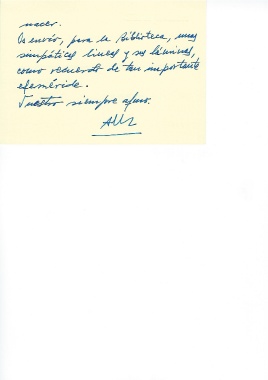 nacer.
Os envío, para la Biblioteca, unas
simpáticas líneas y sus láminas,
como recuerdo de tan importante
efeméride.
Vuestro siempre afmo.